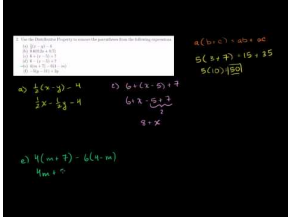 2. Use the Distributive Property to remove the parentheses from the following expressions:
a(b+c) = ab + ac
5(3+7) = 15 + 35
5(10) = 50
a) 1/2(x-y) - 4
1/2x - 1/2y - 4
c) 6 + (x-5) + 7
6 + x - 5 + 7
2
8 + x
e) 4(m+7) - 6(4-m)
4m +